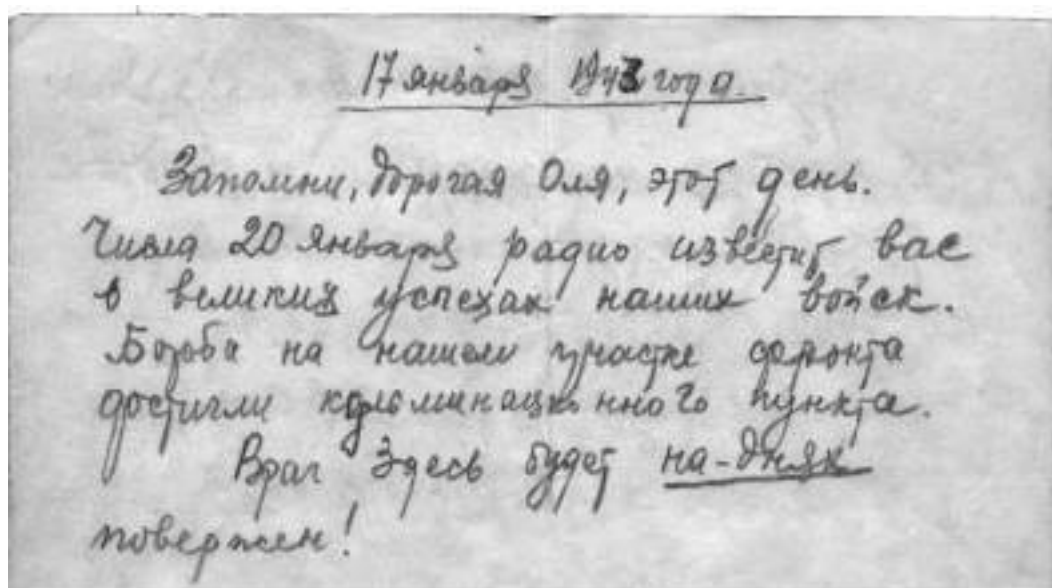 17 января 1943 года.
Запомни, дорогая Оля, этот день.
Числа 20 января радио известит вас
о великих успехах наших войск.
Борьба на нашем участке фронта
достигли кульминационного пункта.
Враг здесь будет на-днях
повержен!